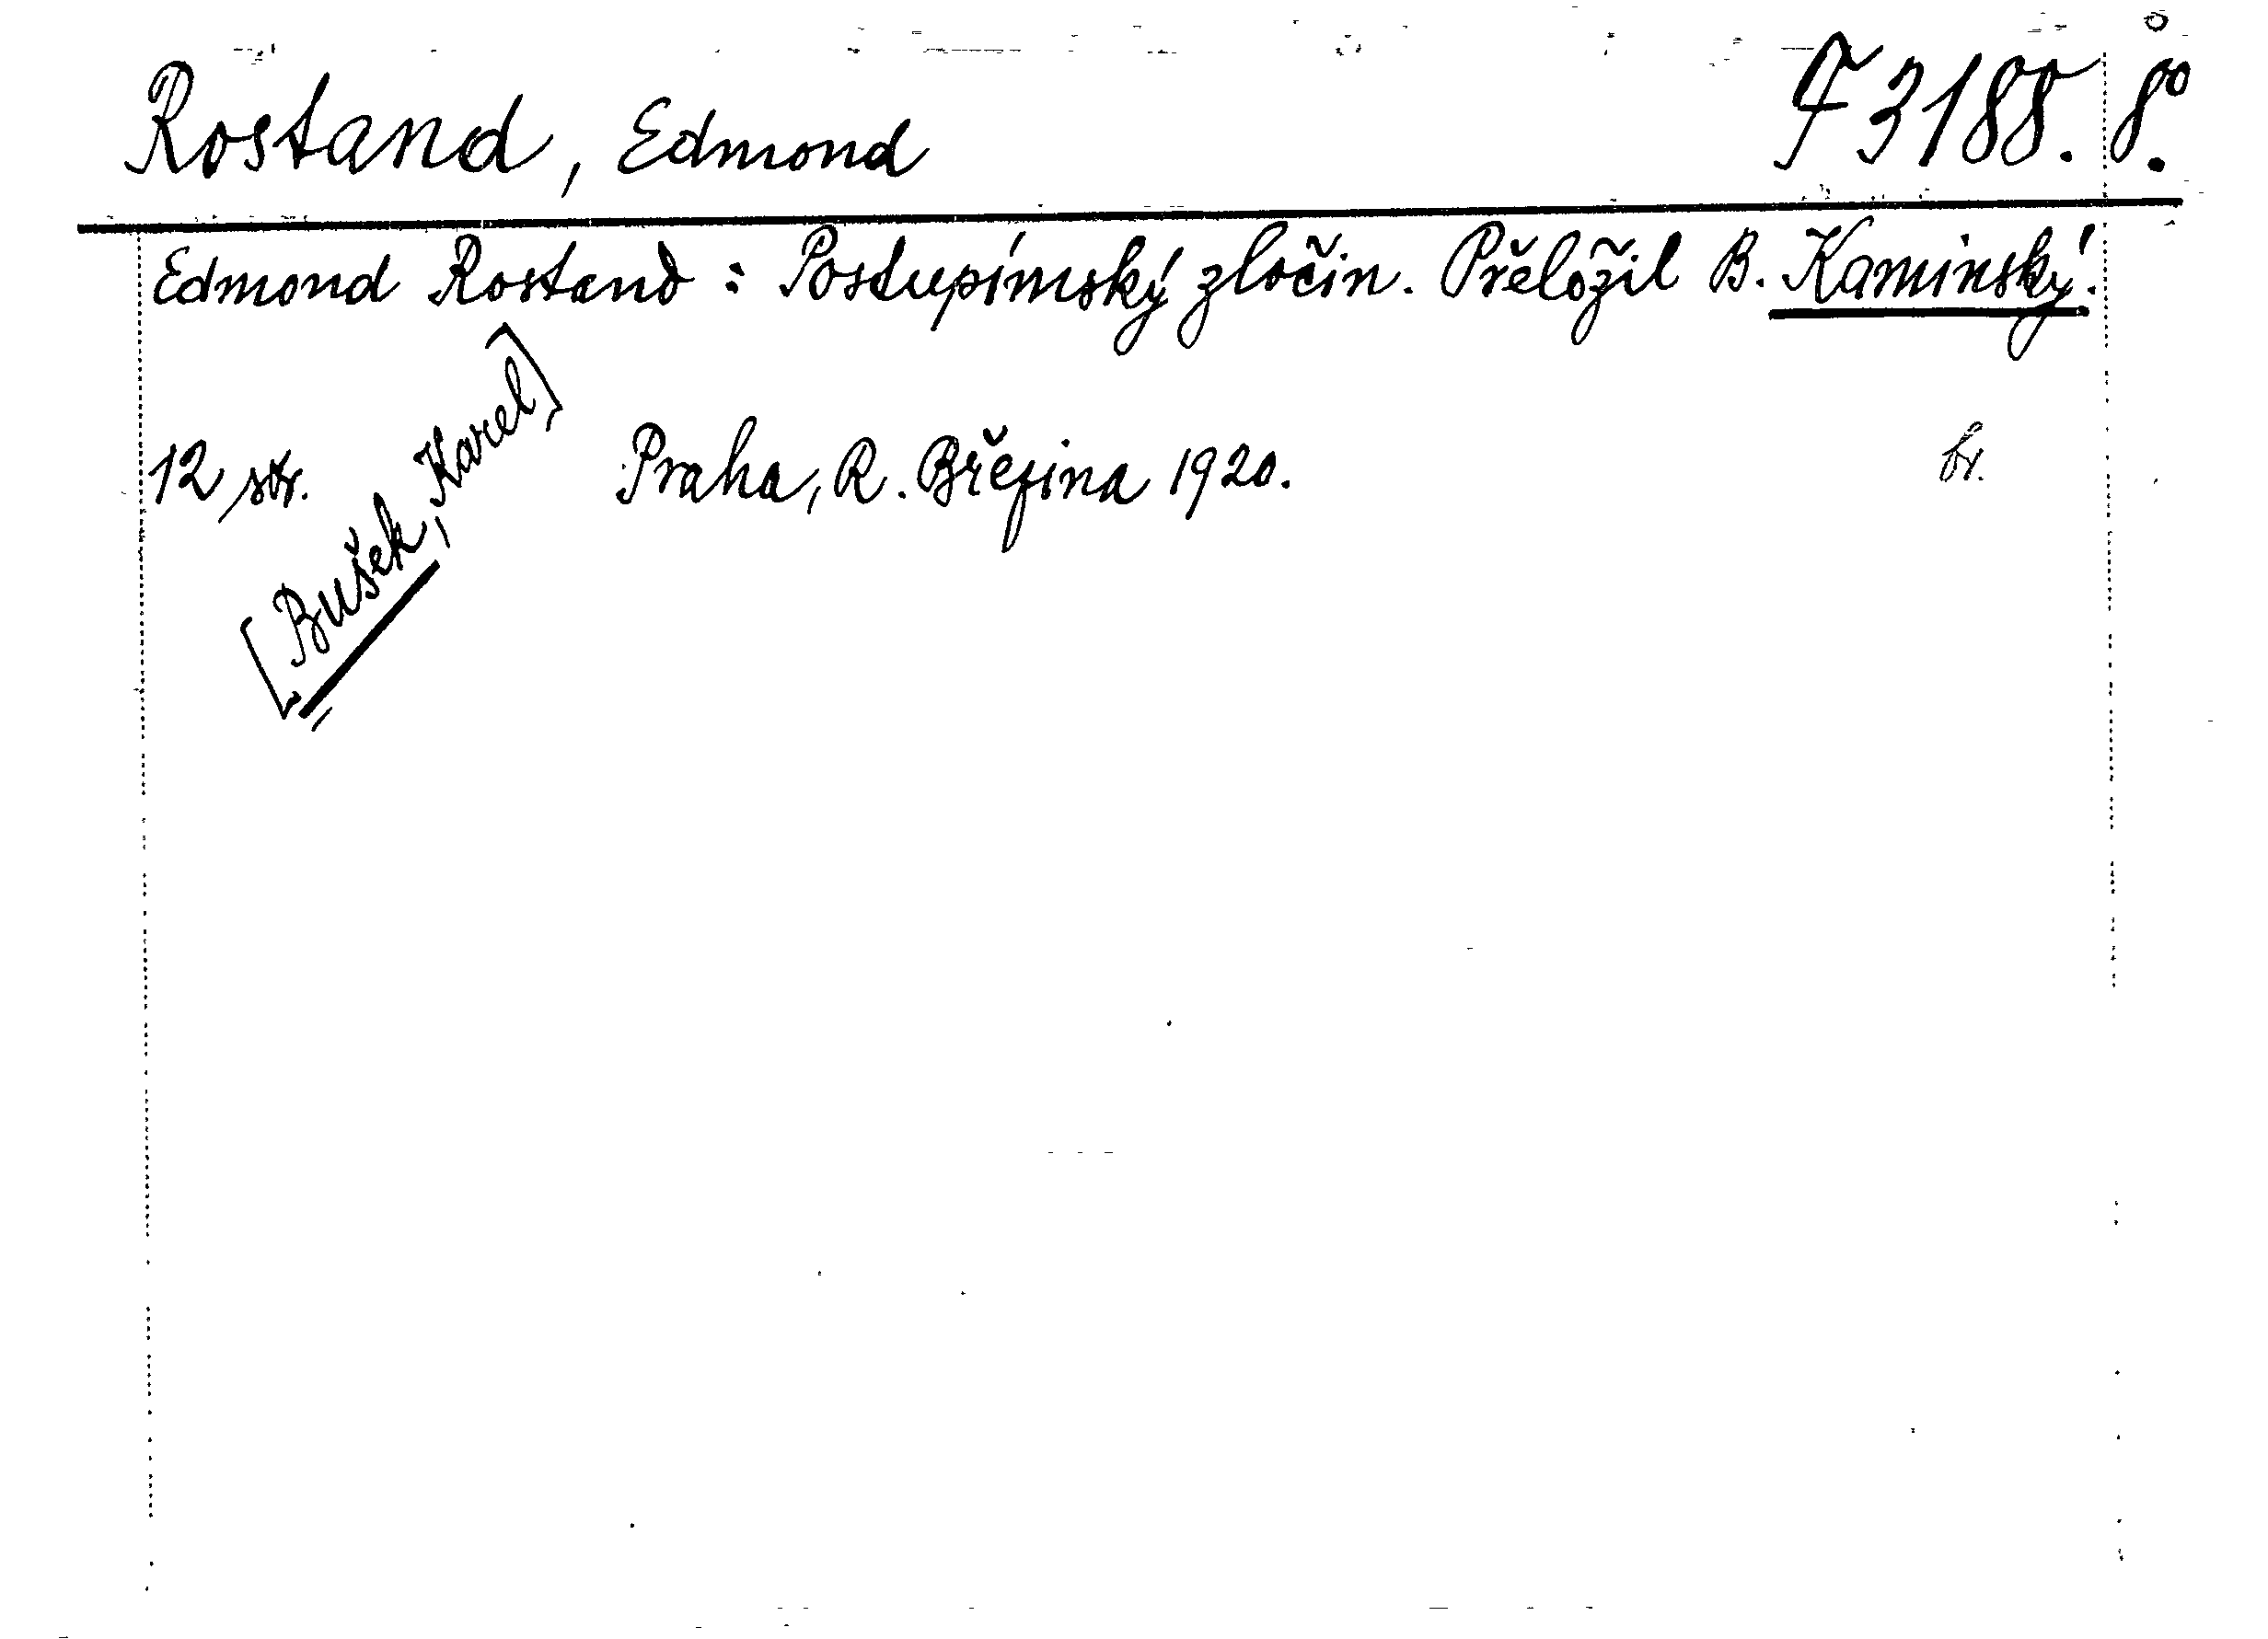 Rostand, Edmond F 3188. 8°.
Edmond Rostand: Postupimský zločin. Přeložil B. Kaminský.
12 str. Praha, R. Březina 1920. br.
[Bušek, Karel]